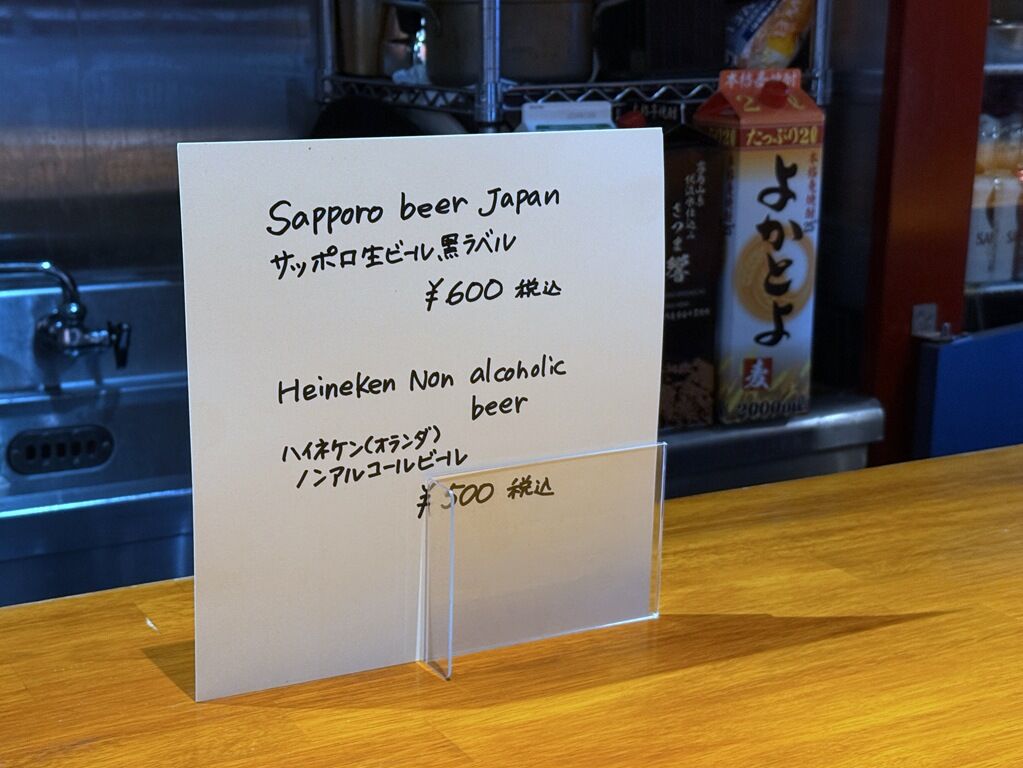 Sapporo beer Japan
サッポロ生ビール、黒ラベル
¥600 税込
Heineken Non alcoholic
beer
ハイネケン(オランダ)
ノンアルコールビール
¥500 税込
本格麦焼酎
たっぷり2ℓ
本格麦焼酎
25°
よかとよ
麦
2000mℓ
本格芋焼酎
霧島山系
伏流水仕込み
さつま